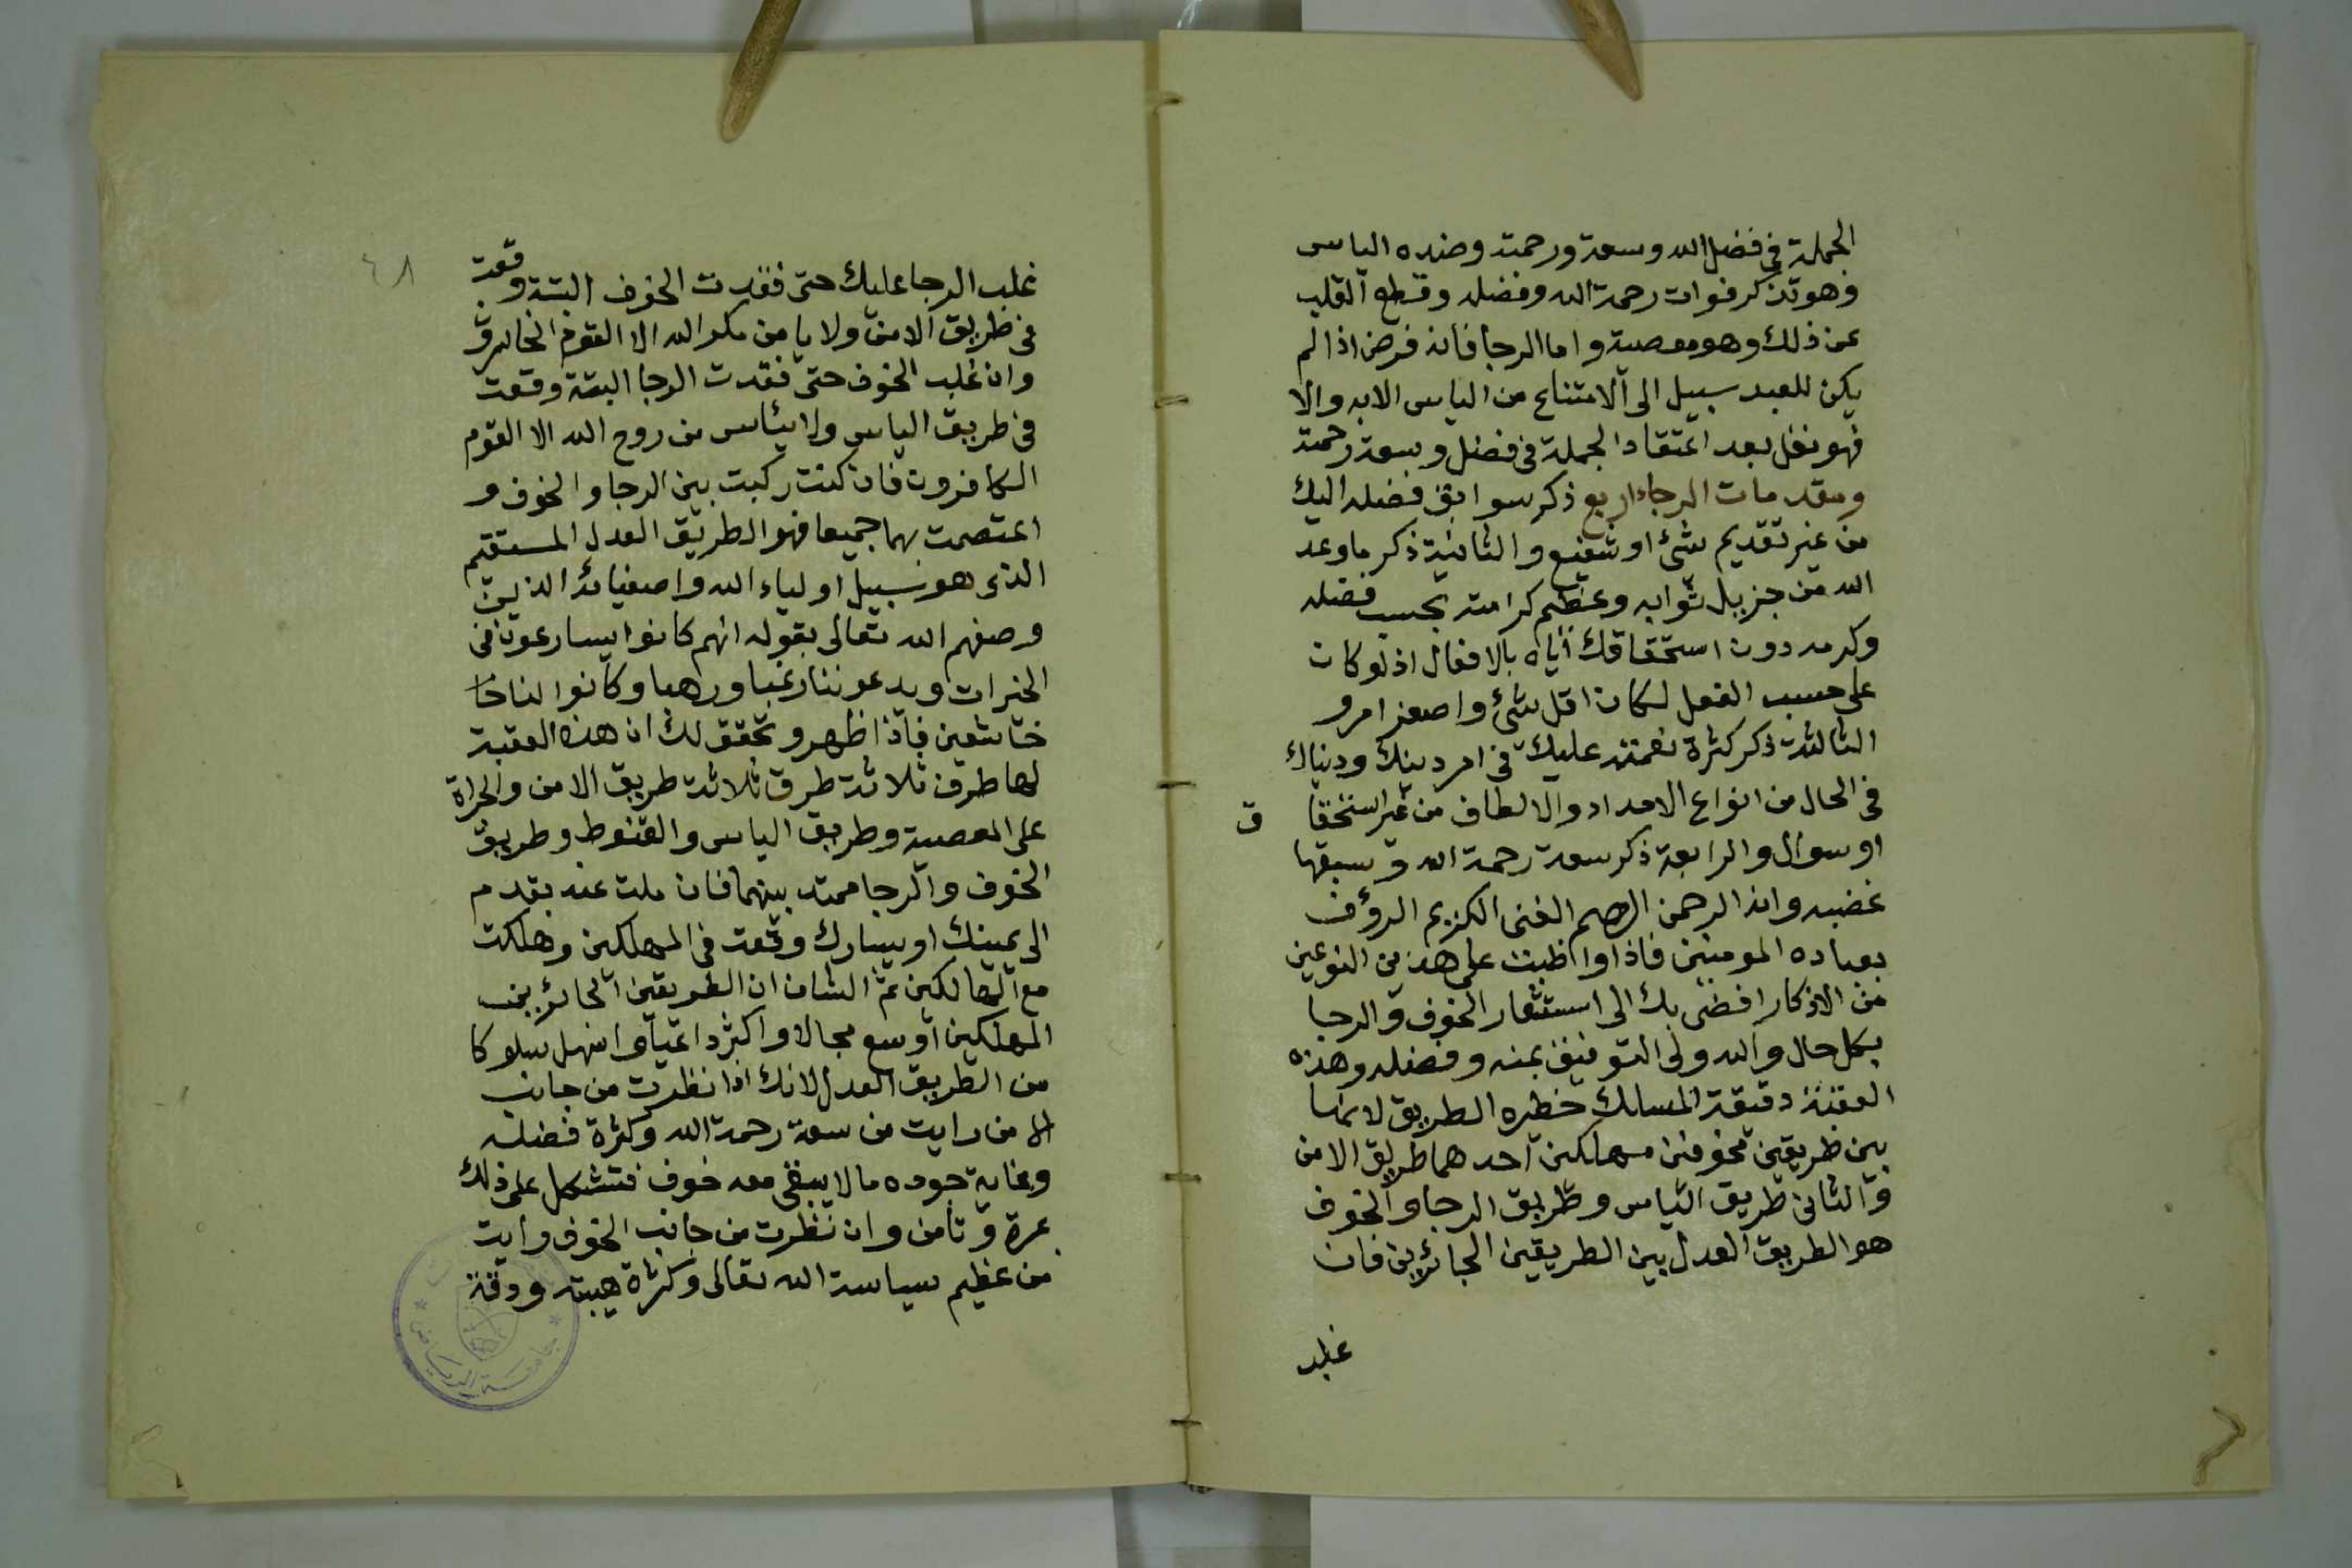 الجملة في فضل الله وسعة ورحمته وضده الياس
وهو تذكر فوات رحمة الله وفضله وقطع القلب
عن ذلك وهو معصية واما الرجا فانه فرض اذا لم
يكن للعبد سبيل الى الامتناع من الياس الابه والا
فهو نفل بعد اعتقاد الجملة في فضل وسعة رحمته
ومقدمات الرجاء اربع ذكر سوابق فضله اليك
من غير تقديم شئ او شفيع والثانية ذكر ما وعد
الله من جزيل ثوابه وعظيم كرامته بحسب فضله
وكرمه دون استحقاقك اياه بالافعال اذ لو كان
على حسب الفعل لكان اقل شئ واصغر امر و
الثالثة ذكر كثرة نعمته عليك في امر دينك ودنياك
في الحال من انواع الامداد والالطاف من غير استحقا ق
او سوال والرابعة ذكر سعة رحمة الله وسبقها
غضبه وانه الرحمن الرحيم الغنى الكريم الرؤف
بعباده المومنين فاذا واظبت على هذين النوعين
من الاذكار افضى بك الى استشعار الخوف والرجا
بكل حال والله ولى التوفيق بمنه وفضله وهذه
العقبة دقيقة المسالك خطره الطريق لانها
بين طريقين مخوفين مهلكين احدهما طريق الامن
والثاني طريق الياس وطريق الرجا والخوف
هو الطريق العدل بين الطريقين الجائرين فان
غلب
٤٨
غلب الرجا عليك حتى فقدت الخوف البتة وقعت
في طريق الامن ولا يامن مكر الله الا القوم الخاسرو
وان غلب الخوف حتى فقدت الرجا البتة وقعت
في طريق الياس ولا ييأس من روح الله الا القوم
الكافرون فان كنت ركبت بين الرجا والخوف و
اعتصمت بهما جميعا فهو الطريق العدل المستقيم
الذى هو سبيل اولياء الله واصفيائه الذين
وصفهم الله تعالى بقوله انهم كانوا يسارعون في
الخيرات ويدعوننا رغبا ورهبا وكانوا لنا خا
خاشعين فاذا ظهر وتحقق لك ان هذه العقبة
لها طرف ثلاثة طرق ثلاثة طريق الامن والجراة
على المعصية وطريق الياس والقنوط وطريق
الخوف والرجا ممتد بينهما فان ملت عنه بقدم
الى يمينك او يسارك وقعت في المهلكين وهلكت
مع الهالكين ثم الشان ان الطريقين الجائرين
المهلكين اوسع مجالا واكثر داعيا واسهل سلوكا
من الطريق العدل لانك اذا نظرت من جانب
الامن رايت من سعة رحمة الله وكثرة فضله
وغاية جوده ما لا يبقى معه خوف فتتكل على ذلك
بمرة وتامن وان نظرت من جانب الخوف رايت
من عظيم سياسة الله تعالى وكثرة هيبته ودقة
جامعة الرياض